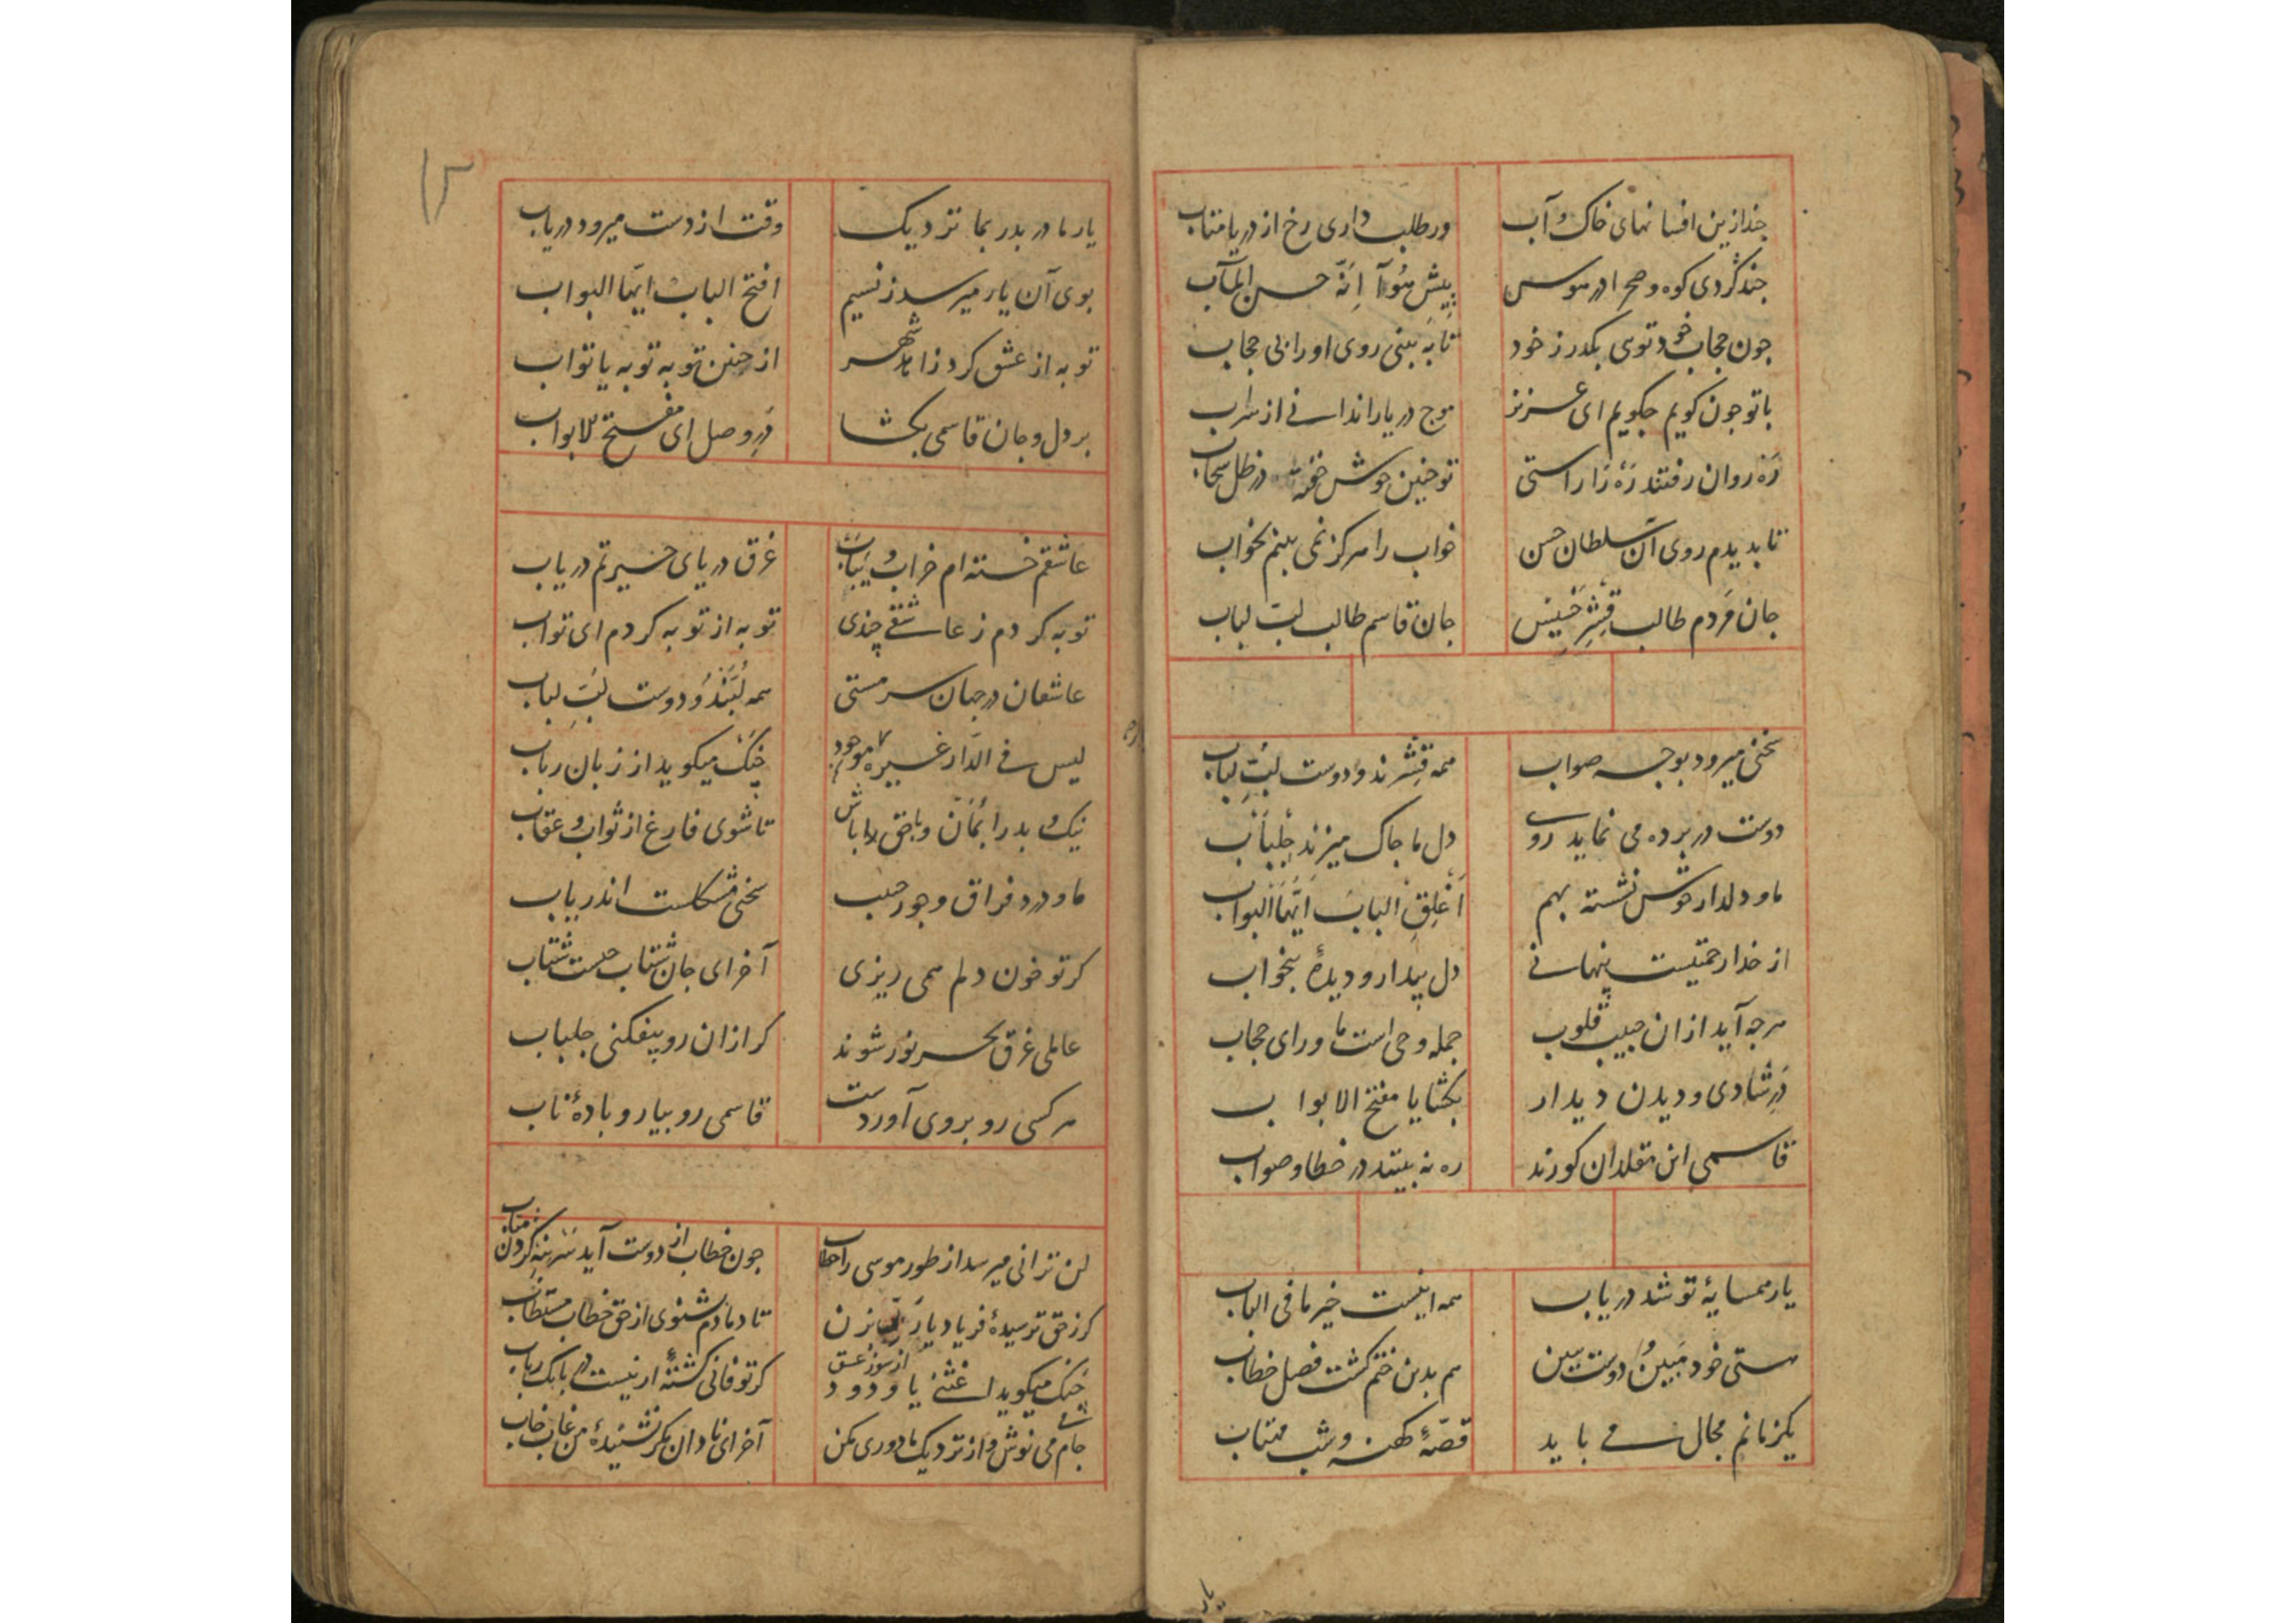 چند ازین افسانهای خاک و آب
ور طلب داری رخ از دریا متاب
چند گردی کوه و صحرا در هوس
پیش هُوَ آ اِنَّهُ حسن المآب
چون حجاب خود توی بگذر ز خود
تا به بینی روی او را بی حجاب
با تو چون گویم چگویم ای عزیز
موج دریا را ندانی از سراب
ره روان رفتند ره را راستی
تو چنین خوش خفته در ظل سحاب
تا بدیدم روی آن سلطان حسن
خواب را هرگز نمی بینم بخواب
جان مردم طالب قشر خسیس
جان قاسم طالب لب لباب
سخنی میرود بوجه صواب
همه قشرند و دوست لب لباب
دوست در پرده می نماید روی
دل ما چاک میزند جلباب
ما و دلدار خوش نشسته بهم
اغلق الباب ایها البواب
از خدا رحمتیست پنهانی
دل بیدار و دیدۀ بیخواب
هرچه آید ازان حبیب قلوب
جمله وحی است ما ورای حجاب
در شادی و دیدن دیدار
بگشا یا مفتح الابواب
قاسمی این مقلدان کورند
ره نه بینند در خطا و صواب
یار همسایۀ تو شد دریاب
همه اینست خیر ما فی الباب
هستی خود مبین و دوست ببین
هم بدین ختم گشت فصل خطاب
یکزمانم مجال می باید
قصۀ کهنه و شب مهتاب
یار
۱۳
یار ما در بدر بما نزدیک
وقت از دست میرود دریاب
بوی آن یار میرسد ز نسیم
افتح الباب ایها البواب
توبه از عشق کرد زاهد شهر
از چنین توبه توبه یا تواب
بر دل و جان قاسمی بگشا
در وصل ای مفتح الابواب
عاشقم خسته ام خراب و یباب
غرق دریای حیرتم دریاب
توبه کردم ز عاشقی چندی
توبه از توبه کردم ای تواب
عاشقان در جهان سرمستی
همه لبند و دوست لب لباب
لیس فی الدار غیره موجود
چنگ میگوید از زبان رباب
نیک و بد را بمان و با حق باش
تا شوی فارغ از ثواب و عقاب
ما و درد فراق و جور حبیب
سخنی مشکلست اندر باب
گر تو خون دلم همی ریزی
آخر ای جان شتاب چیست شتاب
عالمی غرق بحر نور شوند
گر ازان رو بیفکنی جلباب
هر کسی رو بروی آوردست
قاسمی رو بیار و بادۀ ناب
لن ترانی میرسد از طور موسی را خطاب
چون خطاب از دوست آید سر بنه گردن متاب
گر ز حق ترسیدۀ فریاد یا رب بزن
تا دمادم بشنوی از حق خطاب مستطاب
چنگ میگوید از سوز عشق اغثنی یا ودود
گر تو فانی گشتۀ از نیست در بانگ رباب
جام می می نوش و از نزدیک ما دوری مکن
آخر ای نادان مگر نشنیدۀ من غاب خاب